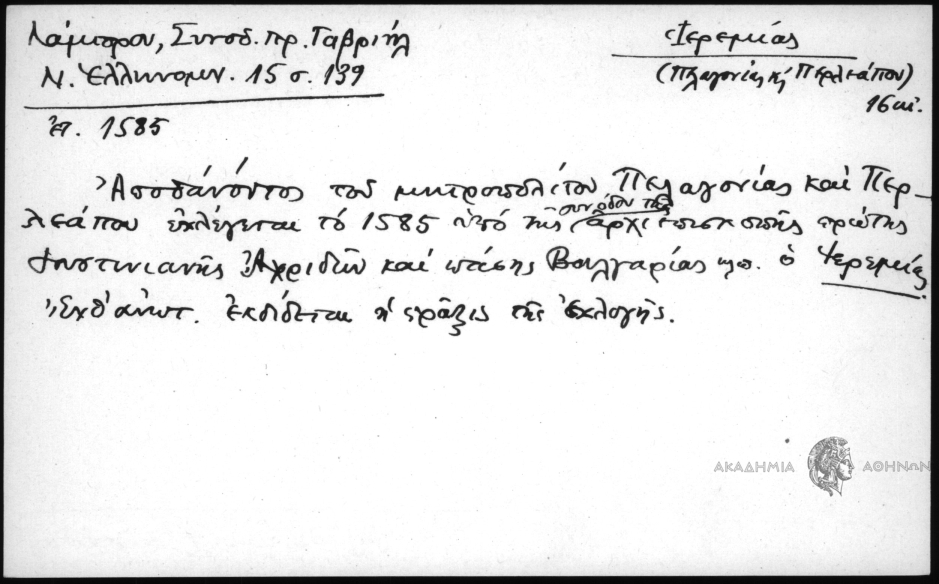 Λάμπρου, Συνοδ. πρ. Γαβριήλ
Ν. Ἑλληνομν. 15 σ. 139
Ἰερεμίας
(Πλαγονίας κ Περλεάπου)
16 αἰ.
ἔτ. 1585
Ἀποθανόντος τοῦ μητροπολίτου Πελαγονίας καὶ Περ-
λεάπου ἐκλέγεται τὸ 1585 ὑπὸ τῆς συνόδου τῆς ἀρχιεπισκοπῆς πρώτης
Ἰουστινιανῆς Ἀχριδῶν καὶ πάσης Βουλγαρίας κλπ. ὁ Ἰερεμίας
Ἐκδίδεται ἡ πρᾶξις τῆς ἐκλογῆς.
ΑΚΑΔΗΜΙΑ ΑΘΗΝΩΝ